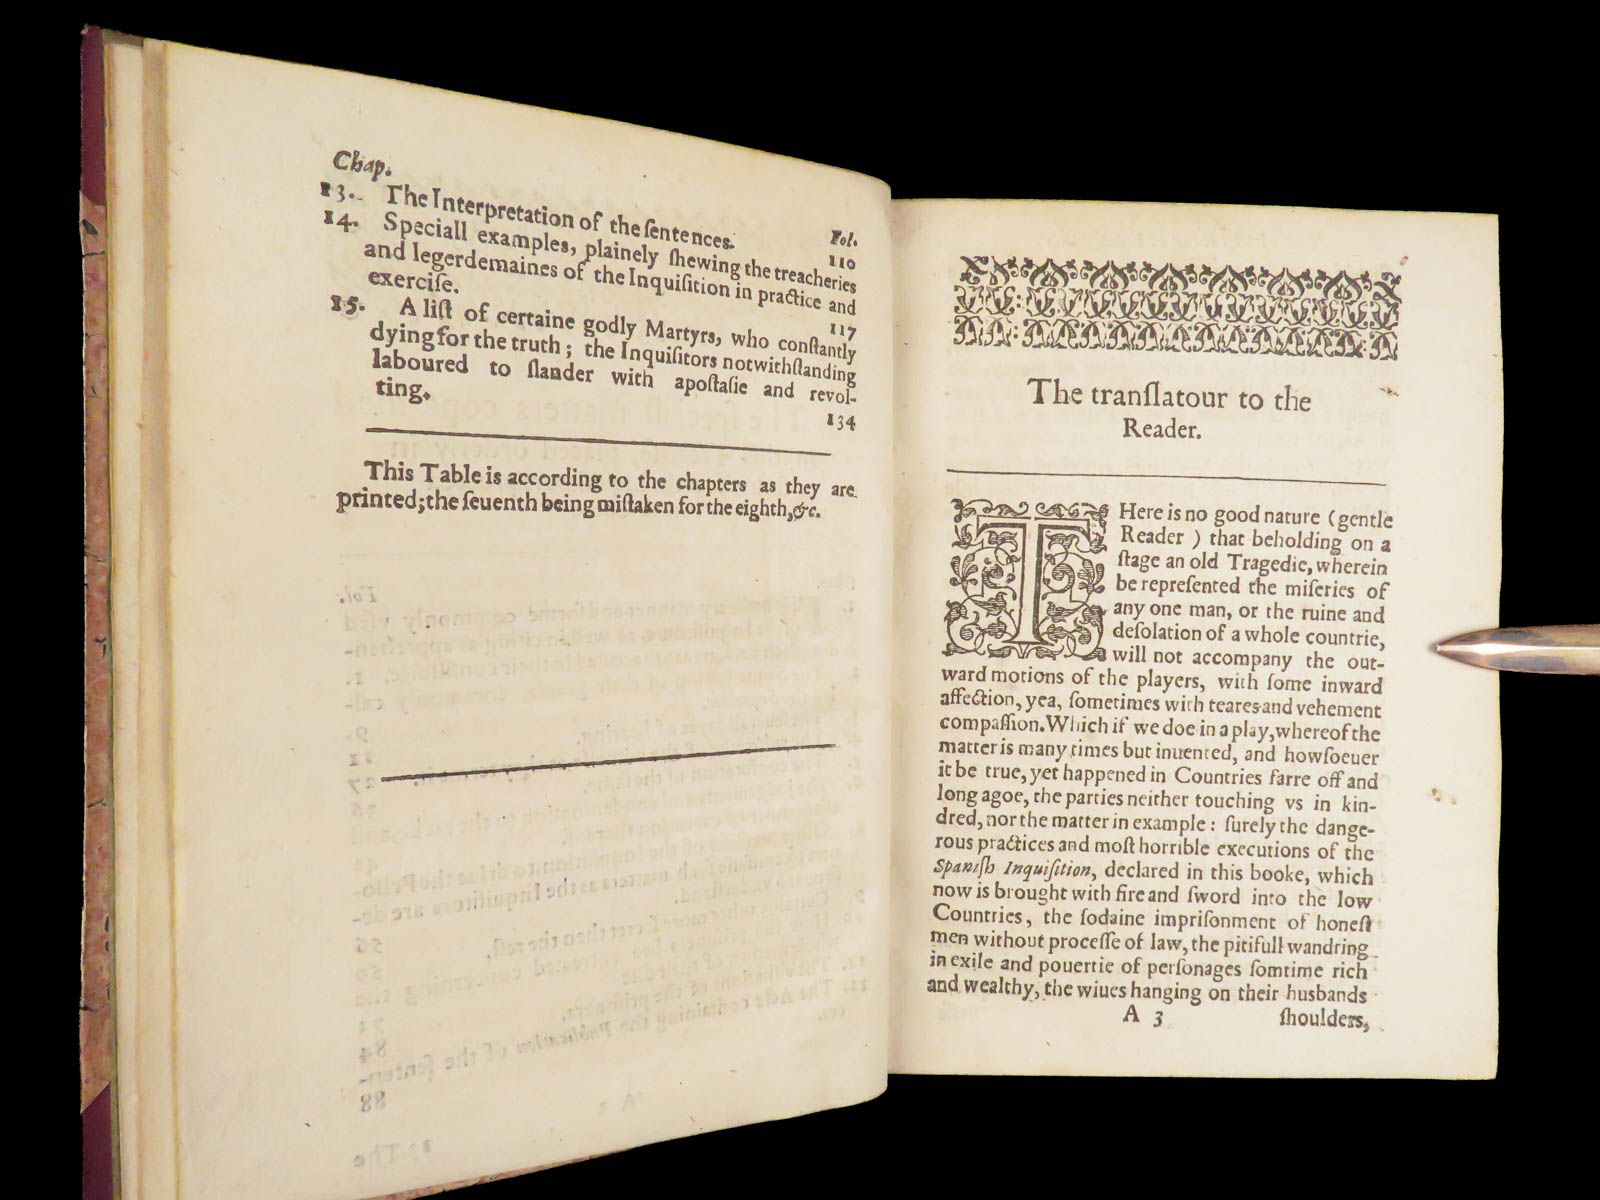 Chap.
Fol.
13. The Interpretation of the ſentences. 110
14. Speciall examples, plainely ſhewing the treacheries
and legerdemaines of the Inquiſition in practice and
exerciſe. 117
15. A liſt of certaine godly Martyrs, who conſtantly
dying for the truth; the Inquiſitors notwithſtanding
laboured to ſlander with apoſtaſie and revol-
ting. 134
This Table is according to the chapters as they are
printed; the ſeuenth being miſtaken for the eighth, &c.
The tranſlatour to the
Reader.
THere is no good nature (gentle
Reader) that beholding on a
ſtage an old Tragedie, wherein
be repreſented the miſeries of
any one man, or the ruine and
deſolation of a whole countrie,
will not accompany the out-
ward motions of the players, with ſome inward
affection, yea, ſometimes with teares and vehement
compaſſion. Which if we doe in a play, whereof the
matter is many times but inuented, and howſoeuer
it be true, yet happened in Countries farre off and
long agoe, the parties neither touching vs in kin-
dred, nor the matter in example: ſurely the dange-
rous practices and moſt horrible executions of the
Spaniſh Inquiſition, declared in this booke, which
now is brought with fire and ſword into the low
Countries, the ſodaine impriſonment of honeſt
men without proceſſe of law, the pitifull wandring
in exile and pouertie of perſonages ſomtime rich
and wealthy, the wiues hanging on their husbands
A 3 ſhoulders,